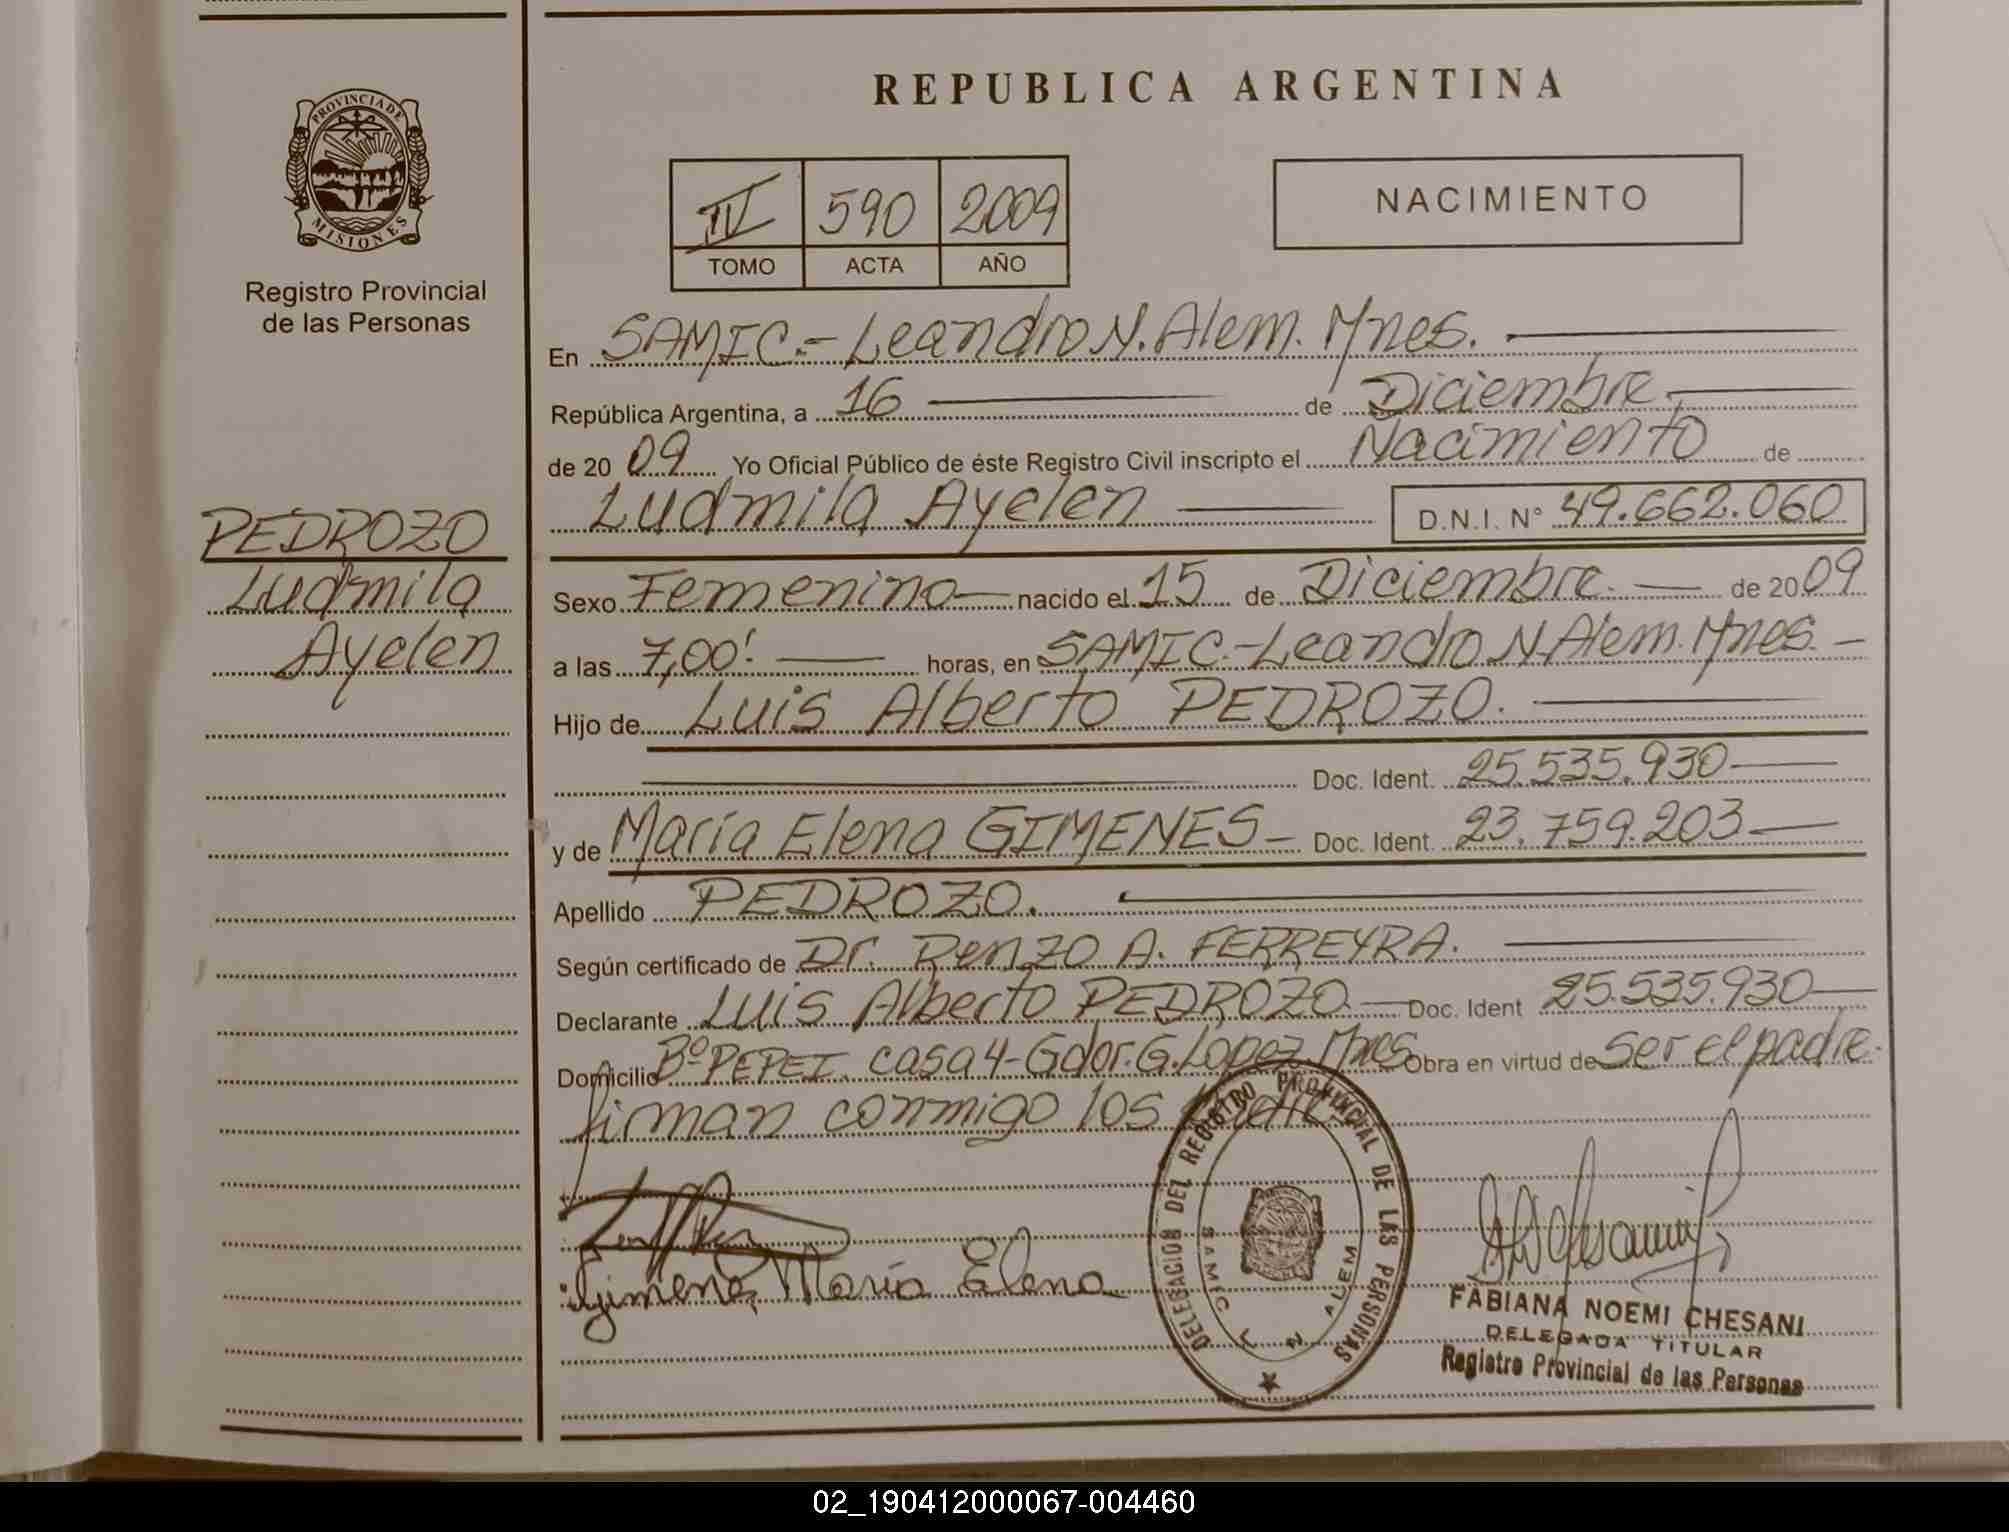 REPUBLICA ARGENTINA
PROVINCIA DE
MISIONES
Registro Provincial
de las Personas
IV 590 2009
TOMO ACTA AÑO
NACIMIENTO
En SAMIC.- Leandro N. Alem. Mnes.
República Argentina, a 16 de Diciembre.
de 20 09 Yo Oficial Público de éste Registro Civil inscripto el Nacimiento de
Ludmila Ayelen D.N.I. N° 49.662.060
PEDROZO
Ludmila
Ayelen
Sexo Femenino nacido el 15 de Diciembre. de 20 09
a las 7,00'. horas, en SAMIC.-Leandro N. Alem. Mnes.
Hijo de Luis Alberto PEDROZO.
Doc. Ident. 25.535.930
y de María Elena GIMENES Doc. Ident. 23.759.203
Apellido PEDROZO.
Según certificado de Dr. Renzo A. FERREYRA.
Declarante Luis Alberto PEDROZO Doc. Ident 25.535.930
Domicilio B° PEPEI. casa 4-Gdor. G. Lopez. Mnes Obra en virtud de Ser el padre.
firman conmigo los
Gimenes María Elena
DELEGACION DEL REGISTRO PROVINCIAL DE LAS PERSONAS
SAMIC L N ALEM
FABIANA NOEMI CHESANI
DELEGADA TITULAR
Registro Provincial de las Personas
02_190412000067-004460